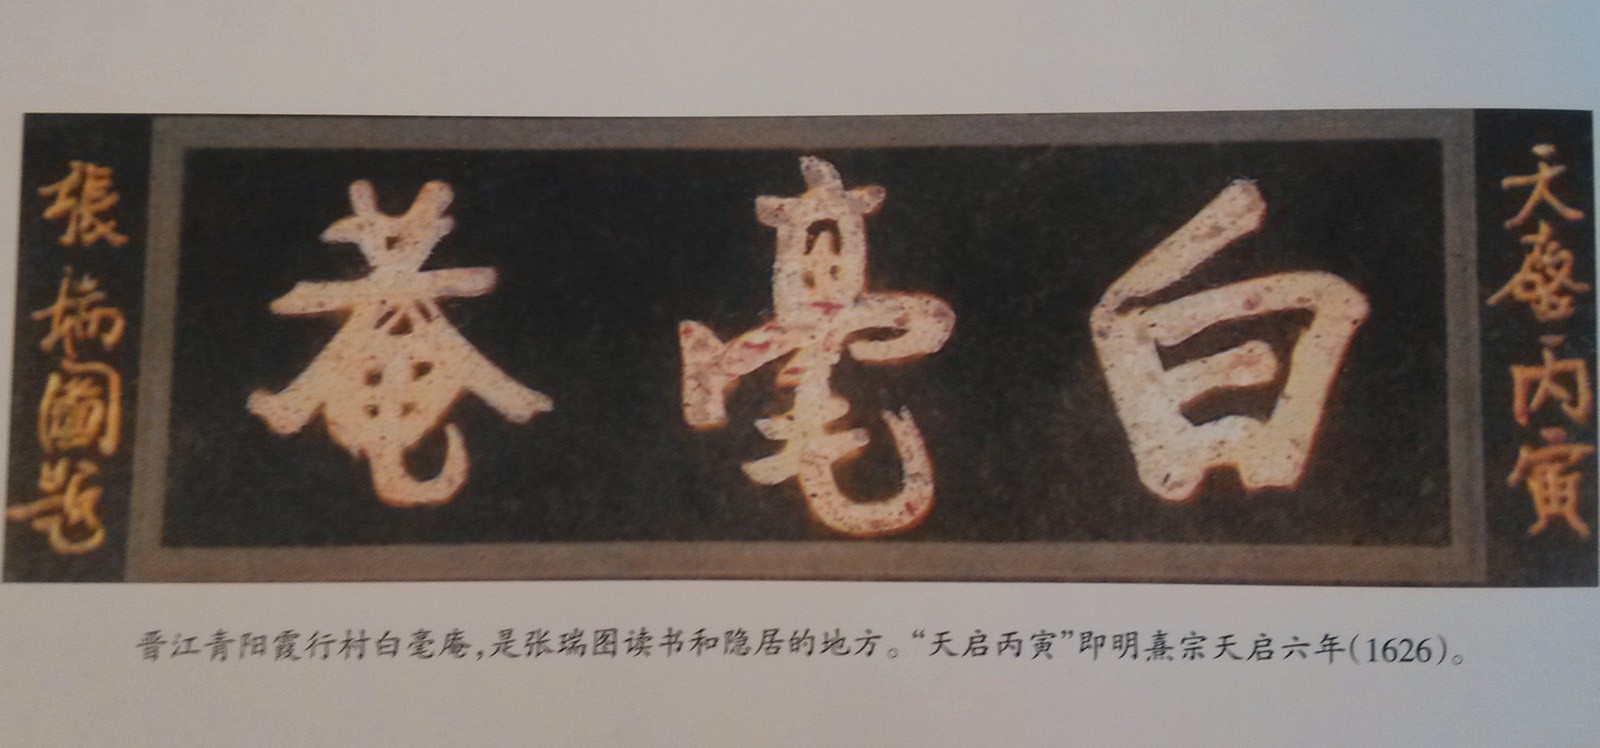 天啓丙寅
白毫菴
張瑞圖題
晋江青阳霞行村白毫庵,是张瑞图读书和隐居的地方。“天启丙寅”即明熹宗天启六年(1626)。